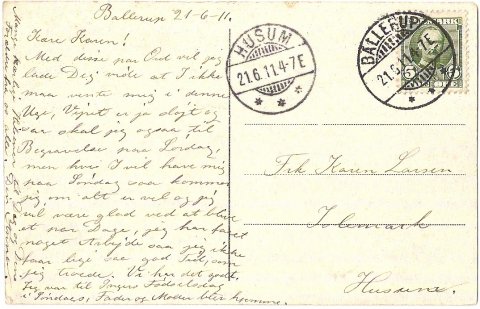 Ballerup 21-6-11.
Kære Karen!
Med disse par Ord vil jeg
lade Dej vide at I ikke
maa vente mig i denne
Uge, Vejret er ja sløjt og
saa skal jeg ogsaa til
Begravelse paa Lørdag,
men hvis I vil have mig
paa Søndag saa kommer
jeg om alt er vel og jeg
vil være glad ved at blive
et par Dage, jeg har faaet
noget Arbejde saa jeg ikke
faar lige saa god Tid, som
jeg troede. Vi har det godt.
Jeg var til Ingers Fødselsdag
i Søndags, Fader og Moder blev hjemme.
HUSUM
21.6.11.4-7E
BALLERUP
21.6.11.4-7E
DANMARK
5
Frk Karen Larsen
Islemark
Husum.